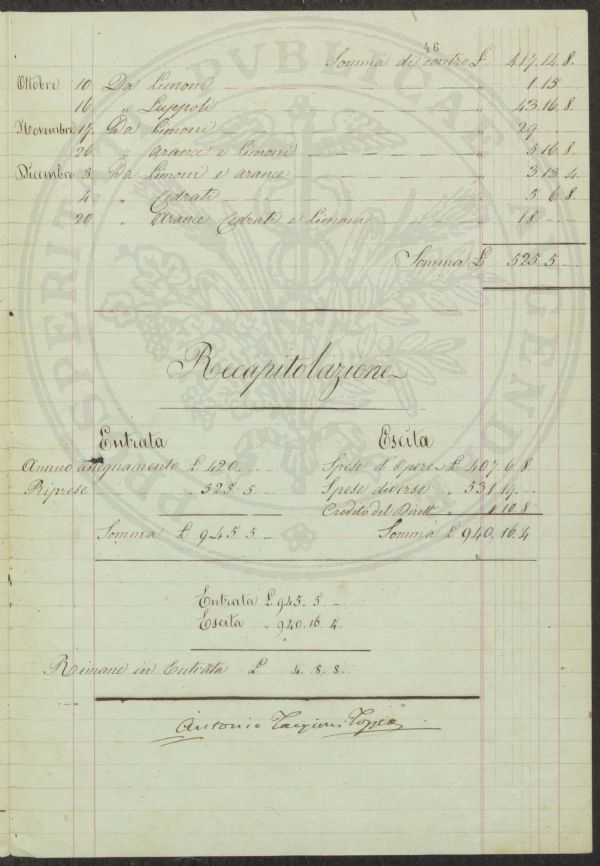 46
Somma di contro £ 417.14.8.
Ottobre 10 Da Limoni „ 1.15.
16 „ Luppoli „ 43.16.8.
Novembre 17. Da Limoni „ 29
26 „ Arance e Limoni „ 5.16.8.
Dicembre 3 Da Limoni e arance „ 3.13.4.
4. „ Cedrati „ 5.6.8.
20 „ Arance Cedrati e Limoni „ 18
Somma £ 525.5
Recapitolazione
Entrata
Annuo assegnamento £ 420.
Riprese „ 525.5
Somma £ 945.5
Escita
Spese d'Opere £ 407.6.8
Spese diverse „ 531.19.
Credito del Dirett „ 1.10.8
Somma £ 940.16.4
Entrata £ 945.5.
Escita „ 940.16.4.
Rimane in Entrata £ 4.8.8.
Antonio Targioni Tozzetti